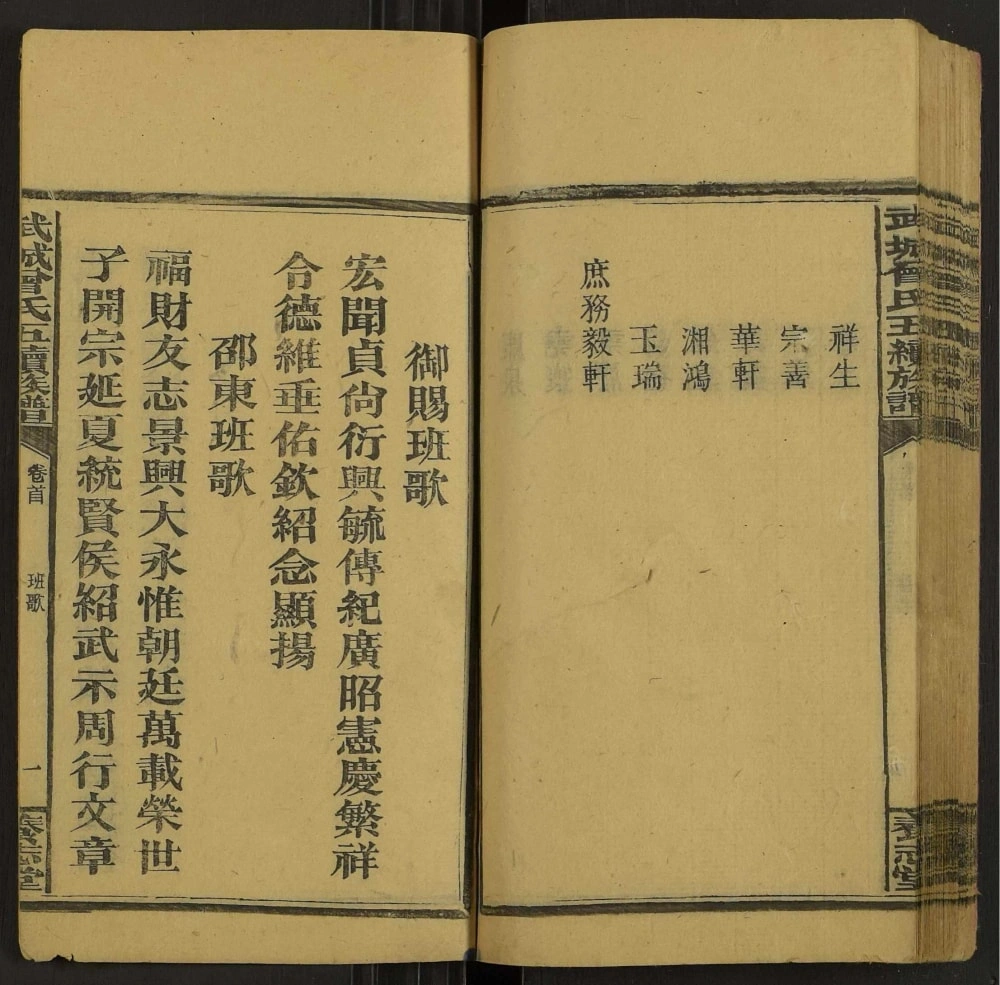 武城曾氏五續族譜
養志堂
祥生
宗善
華軒
湘鴻
玉瑞
庶務毅軒
御賜班歌
宏聞貞尚衍興毓傳紀廣昭憲慶繁祥
令德維垂佑欽紹念顯揚
邵東班歌
福財友志景興大永惟朝廷萬載榮世
子開宗延夏統賢侯紹武示周行文章
武城曾氏五續族譜
卷首
班歌
一
養志堂